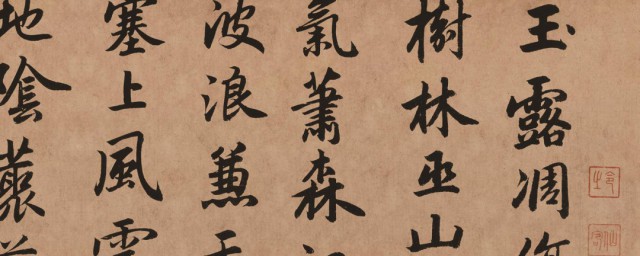 玉露凋傷
樹林巫山
氣蕭森
波浪兼天
塞上風雲
地陰叢